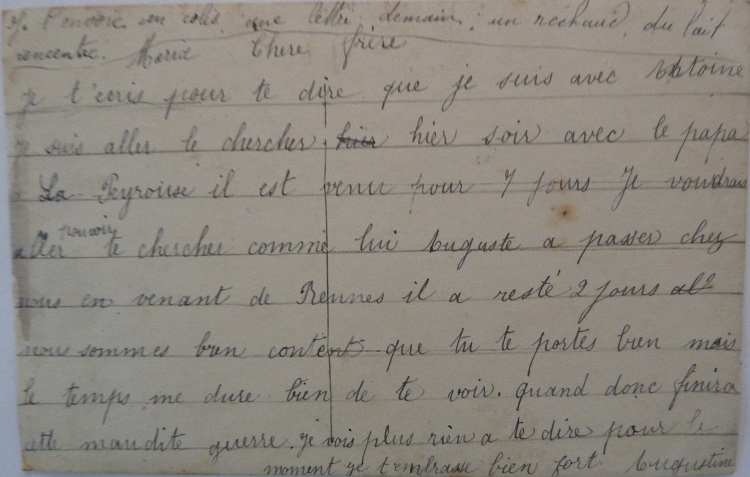 y. t'envoie un colis une lettre demain, un réchaud, du lait
concentré. Maria Chere frère
je t'écris pour te dire que je suis avec Antoine
je suis aller le chercher hier hier soir avec le papa
a La Peyrouse il est venu pour 7 jours Je voudrais
pouvoir
aller te chercher comme lui Auguste a passer chez
nous en venant de Rennes il a resté 2 jours
nous sommes bien content que tu te portes bien mais
le temps me dure bien de te voir. quand donc finira
cette maudite guerre. je vois plus rien a te dire pour le
moment je t'embrasse bien fort Augustine